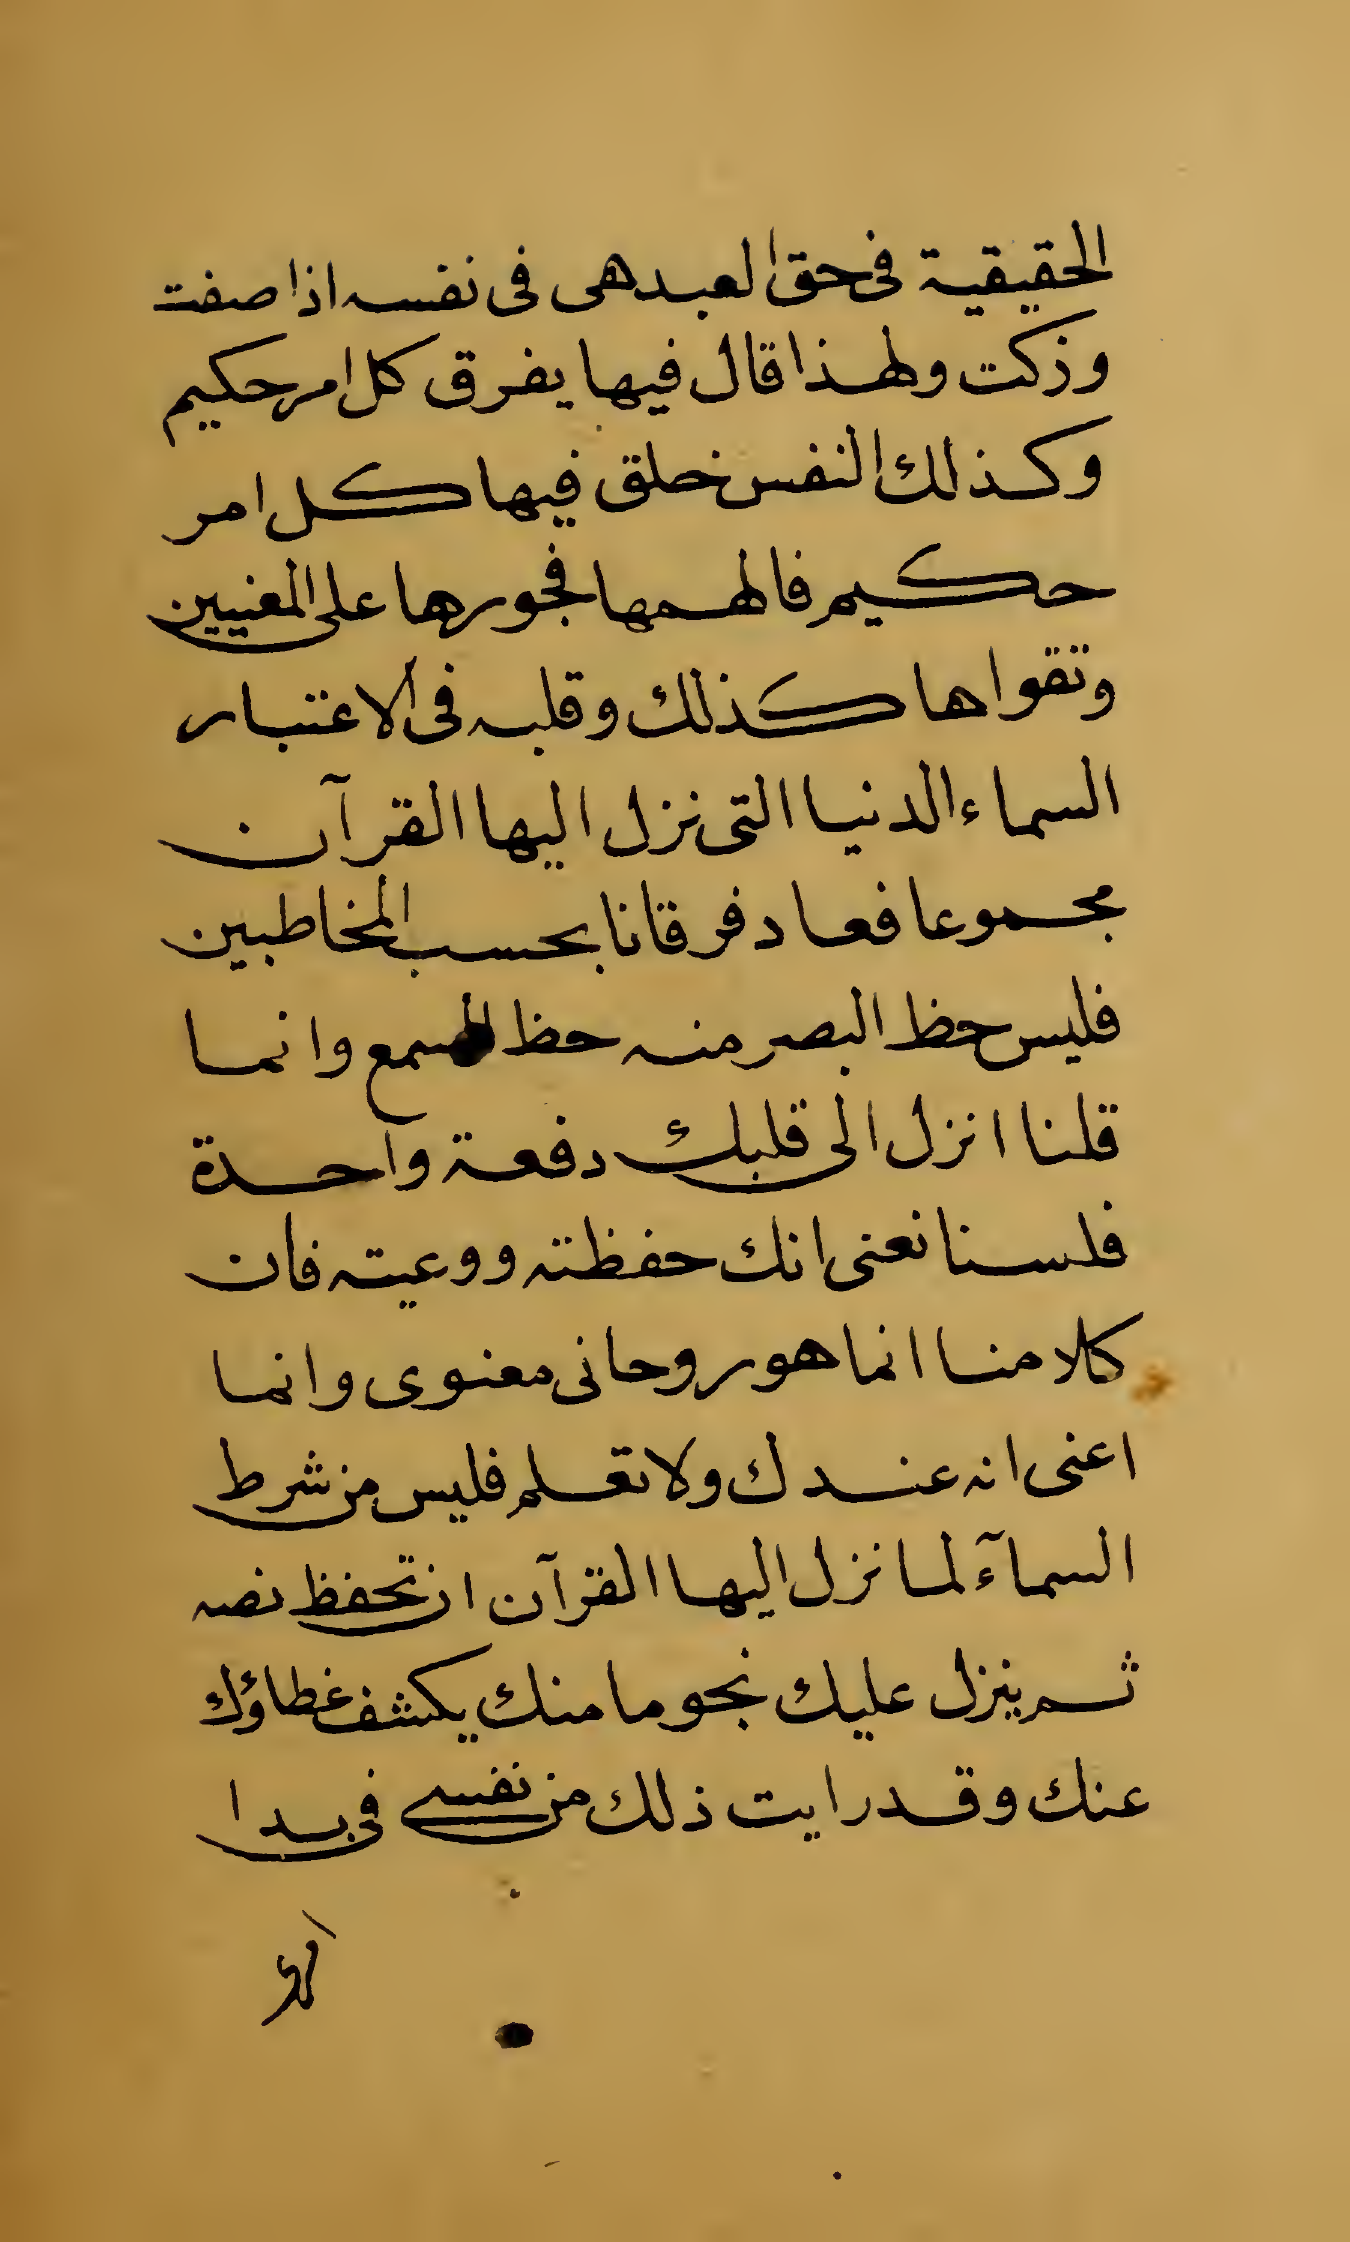 الحقيقية فى حق العبد هى فى نفسه اذا صفت
وزكت ولهذا قال فيها يفرق كل امر حكيم
وكذلك النفس خلق فيها كل امر
حكيم فالهمها فجورها على المعنيين
وتقواها كذلك وقلبه فى الاعتبار
السماء الدنيا التى نزل اليها القرآن
مجموعا فعاد فرقانا بحسب المخاطبين
فليس حظ البصر منه حظ السمع وانما
قلنا انزل الى قلبك دفعة واحدة
فلسنا نعنى انك حفظته ووعيته فان
كلامنا انما هو روحانى معنوى وانما
اعنى انه عندك ولا تعلم فليس من شرط
السمآء لما نزل اليها القرآن ان تحفظ نصه
ثم ينزل عليك نجوما منك يكشف غطاؤك
عنك وقد رايت ذلك من نفسى فى بدا